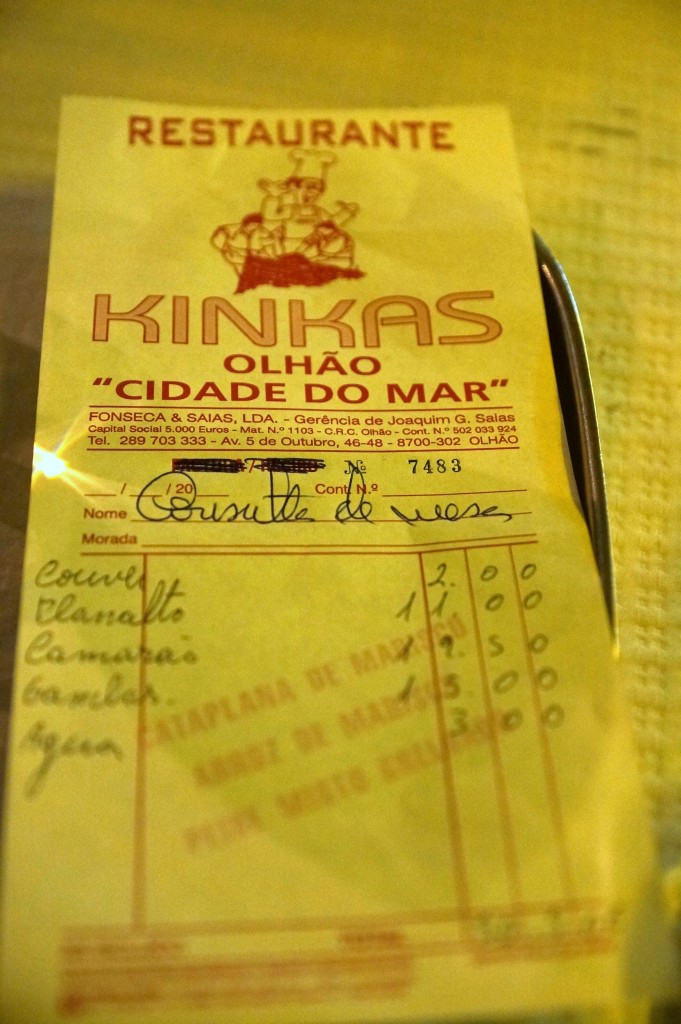 RESTAURANTE
KINKAS
OLHÃO
"CIDADE DO MAR"
FONSECA & SAIAS, LDA. - Gerência de Joaquim G. Saias
Capital Social 5.000 Euros - Mat. N.º 1103 - C.R.C. Olhão - Cont. N.º 502 033 924
Tel. 289 703 333 - Av. 5 de Outubro, 46-48 - 8700-302 OLHÃO
Nº 7483
/ / 20 Cont. N.º
Nome Consulta de mesa
Morada
Couver 2.00
Planalto 11 00
Camarão 19.50
Gambas. 15.00
Agua 3.00
CATAPLANA DE MARISCO
ARROZ DE MARISCO
PEIXE MISTO
TOTAL